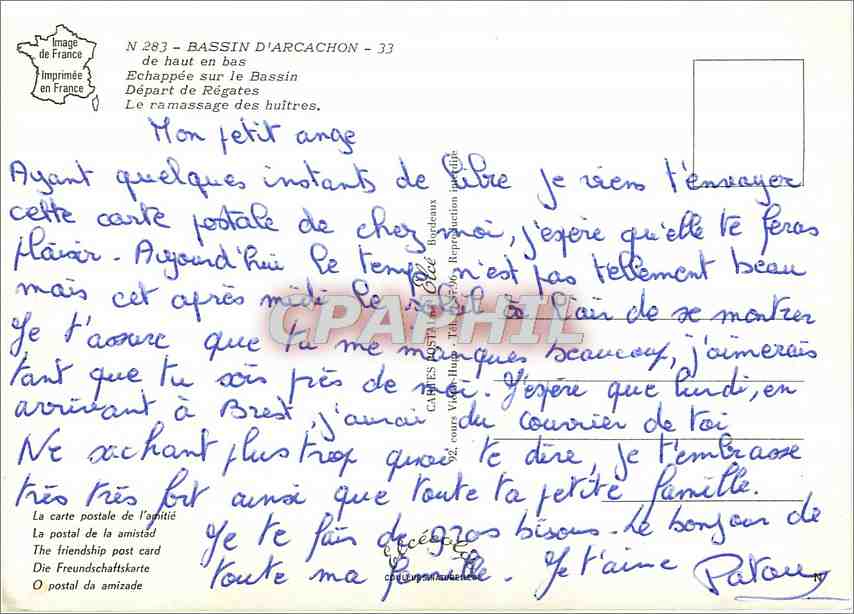 Image
de France
Imprimée
en France
N 283 - BASSIN D'ARCACHON - 33
de haut en bas
Echappée sur le Bassin
Départ de Régates
Le ramassage des huîtres.
Mon petit ange
Ayant quelques instants de libre je viens t'envoyer
cette carte postale de chez moi, j'espère qu'elle te feras
plaisir. Aujourd'hui le temps n'est pas tellement beau
mais cet après midi le soleil à l'air de se montrer
Je t'assure que tu me manques beaucoup, j'aimerais
tant que tu sois près de moi. J'espère que lundi, en
arrivant à Brest, j'aurai du courrier de toi
Ne sachant plus trop quoi te dire, je t'embrasse
très très fort ainsi que toute ta petite famille.
Je te fais de gros bisous. Le bonjour de
toute ma famille. Je t'aime Patou
CARTES POSTALES Elcé Bordeaux
92, cours Victor-Hugo - Tél. Reproduction interdite
CPAPHIL
La carte postale de l'amitié
La postal de la amistad
The friendship post card
Die Freundschaftskarte
O postal da amizade
N